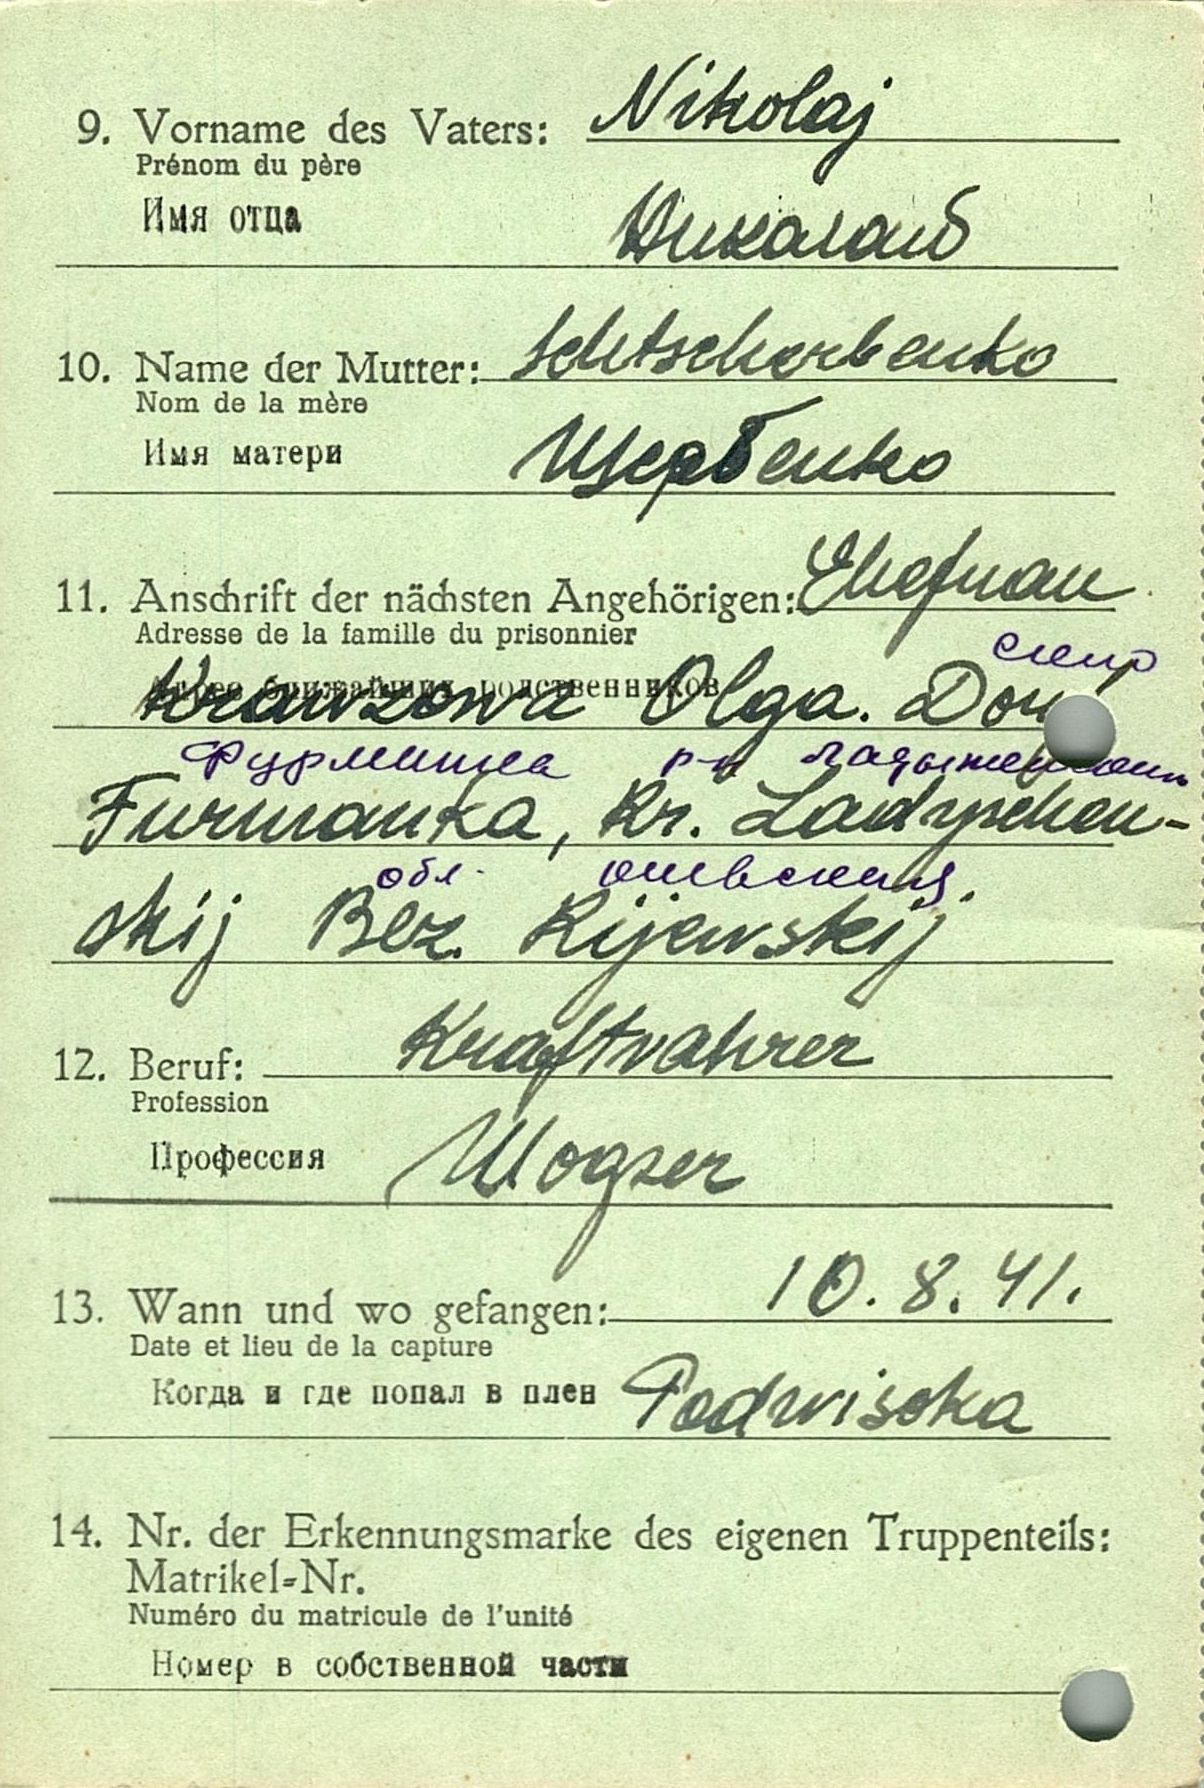 9. Vorname des Vaters: Nikolaj
Prénom du père
Имя отца Николай
10. Name der Mutter: Schtscherbenko
Nom de la mère
Имя матери Щербенко
11. Anschrift der nächsten Angehörigen: Ehefrau
Adresse de la famille du prisonnier
Адрес ближайших родственников
Krawzowa Olga. Dorf
р-н
Furmanka, Kr. Ladyschen-
обл.
skij Bez. Kijewskij
12. Beruf: Kraftvahrer
Profession
Профессия
13. Wann und wo gefangen: 10.8.41.
Date et lieu de la capture
Когда и где попал в плен Podwisoka
14. Nr. der Erkennungsmarke des eigenen Truppenteils:
Matrikel-Nr.
Numéro du matricule de l'unité
Номер в собственной части